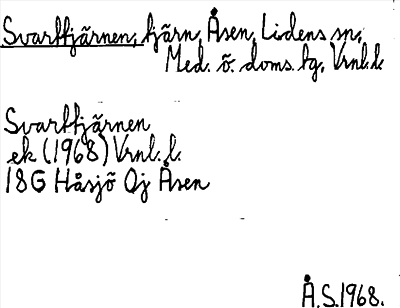 Svarttjärnen, tjärn, Åsen, Lidens sn,
Med. ö. doms. tg, Vrnl.l.
Svarttjärnen
ek (1968) Vrnl. l.
18G Håsjö 0j Åsen
Å.S.1968.